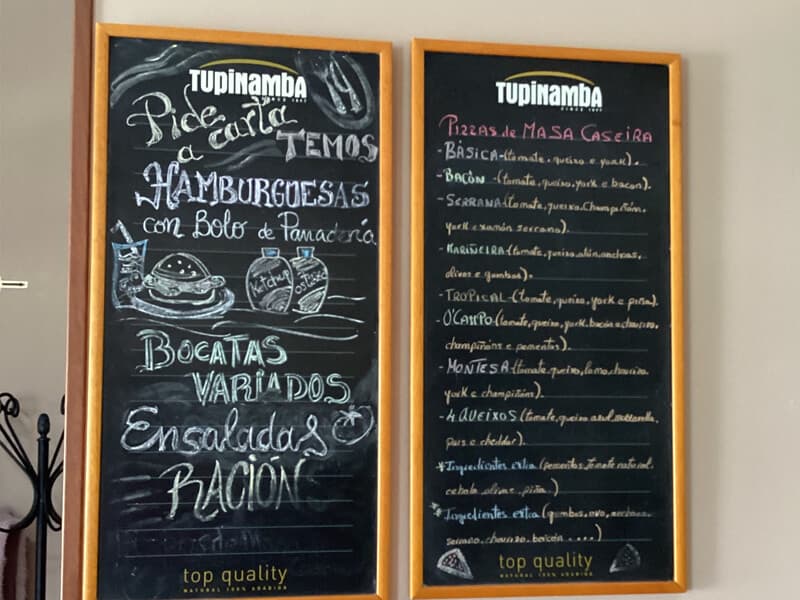 TUPINAMBA
SINCE 1897
Pide
a carta
TEMOS
HAMBURGUESAS
con Bolo de Panadería
Ketchup
BOCATAS
VARIADOS
Ensaladas
RACIÓN
top quality
NATURAL 100% ARABICA
TUPINAMBA
SINCE 1897
PIZZAS de MASA CASEIRA
- BÁSICA-(tomate, queixo e york).
- BACÓN-(tomate, queixo, york e bacon).
- SERRANA-(tomate, queixo, champiñón,
york e xamón serrano).
- MARIÑEIRA-(tomate, queixo, atún, anchoas,
olivas e gambas).
- TROPICAL-(tomate, queixo, york e piña).
- O'CAMPO-(tomate, queixo, york, bacón e chourizo,
champiñóns e pementos).
- MONTESA-(tomate, queixo, lomo, chourizo,
york e champiñón).
- 4 QUEIXOS-(tomate, queixo azul, mozzarella,
pais e cheddar).
*Ingredientes extra (pementos, tomate natural,
cebola, olivas, piña.)
*Ingredientes extra (gambas, ovo, anchoas,
serrano, chourizo, beicón ....)
top quality
NATURAL 100% ARABICA